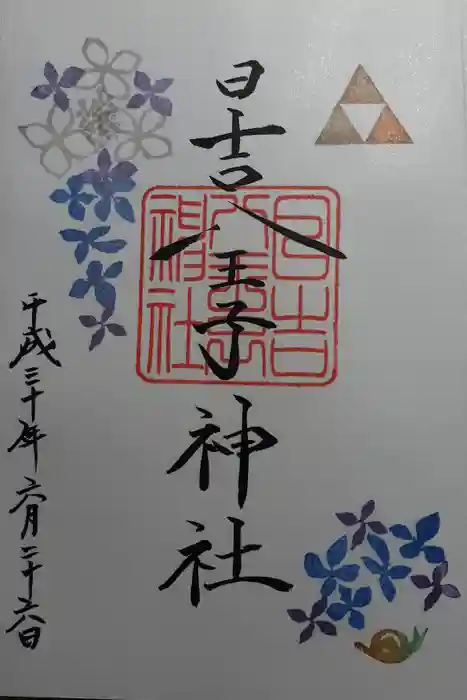 日吉八王子神社
日吉
八王子
神社
平成三十年六月二十六日